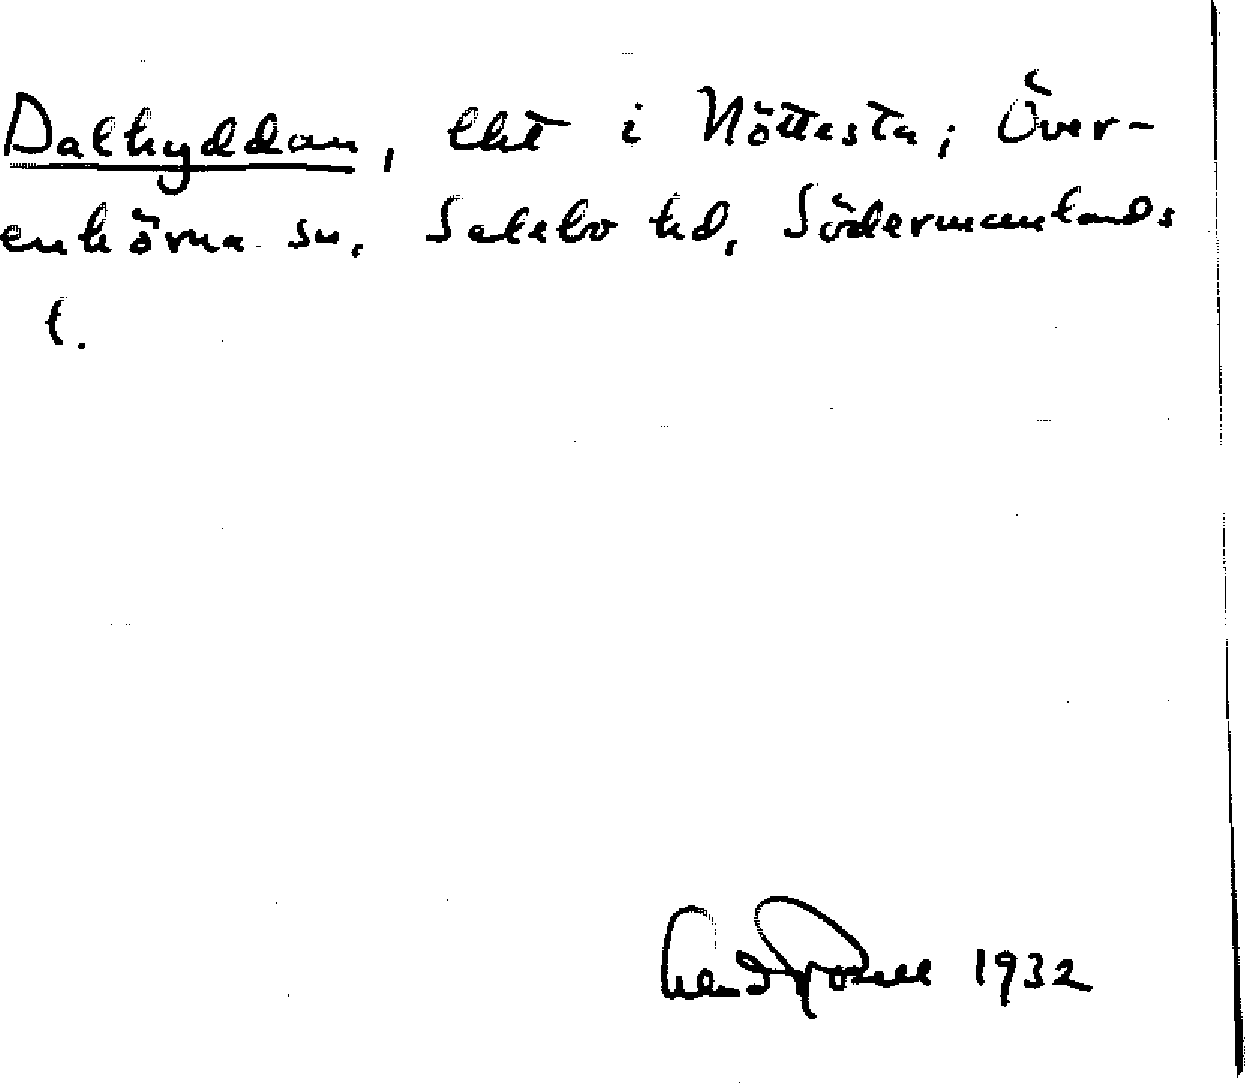 Dalhyddan, lht i Nöttesta, Över-
enhörna sn. Selebo hd, Södermanlands
l.
1932